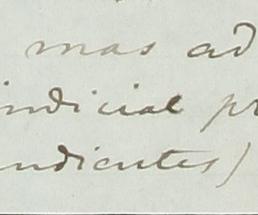 mas ad
indicial pr
indientes)